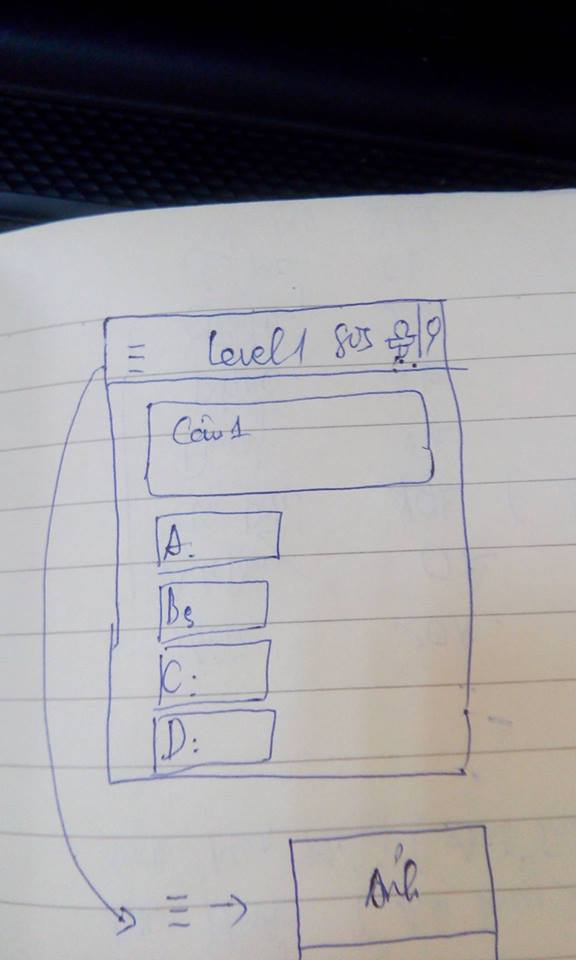 Level 1
Câu 1
A:
B:
C:
D:
Ảnh